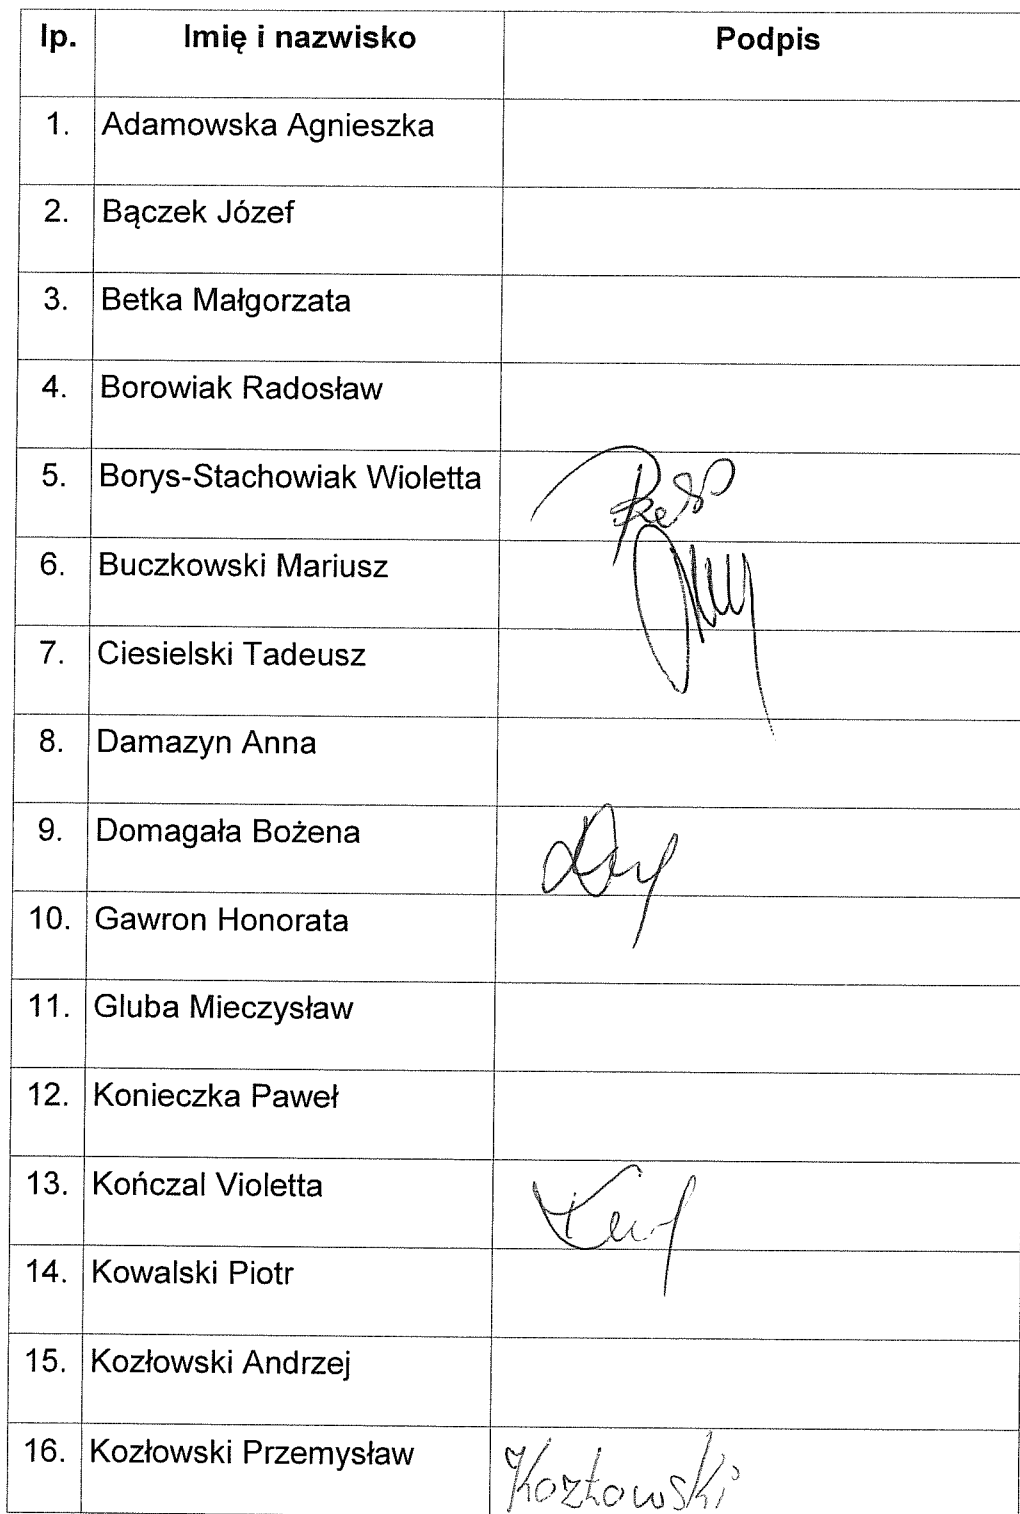 lp. Imię i nazwisko Podpis
1. Adamowska Agnieszka
2. Bączek Józef
3. Betka Małgorzata
4. Borowiak Radosław
5. Borys-Stachowiak Wioletta
6. Buczkowski Mariusz
7. Ciesielski Tadeusz
8. Damazyn Anna
9. Domagała Bożena
10. Gawron Honorata
11. Gluba Mieczysław
12. Konieczka Paweł
13. Kończal Violetta
14. Kowalski Piotr
15. Kozłowski Andrzej
16. Kozłowski Przemysław Kozłowski